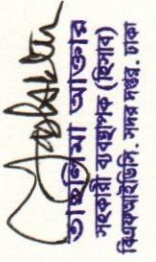 তাহলিমা আক্তার
সহকারী ব্যবস্থাপক (হিসাব)
বিএফআইডিসি. সদর দপ্তর. ঢাকা